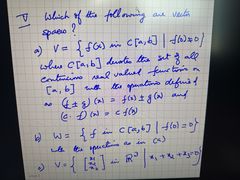 V Which of the following are vector
spaces?
a) V = { f(x) in C[a,b] | f(0) ≠ 0 }
where C[a,b] denotes the set of all
continuous real valued functions on
[a,b] with the operations defined
as (f ± g)(x) = f(x) ± g(x) and
(c·f)(x) = c f(x)
b) W = { f in C[a,b] | f(0) = 0 }
with the operations as in (a)
c) V = { [x₁ x₂ x₃] in R³ | x₁ + x₂ + x₃ = 0 }